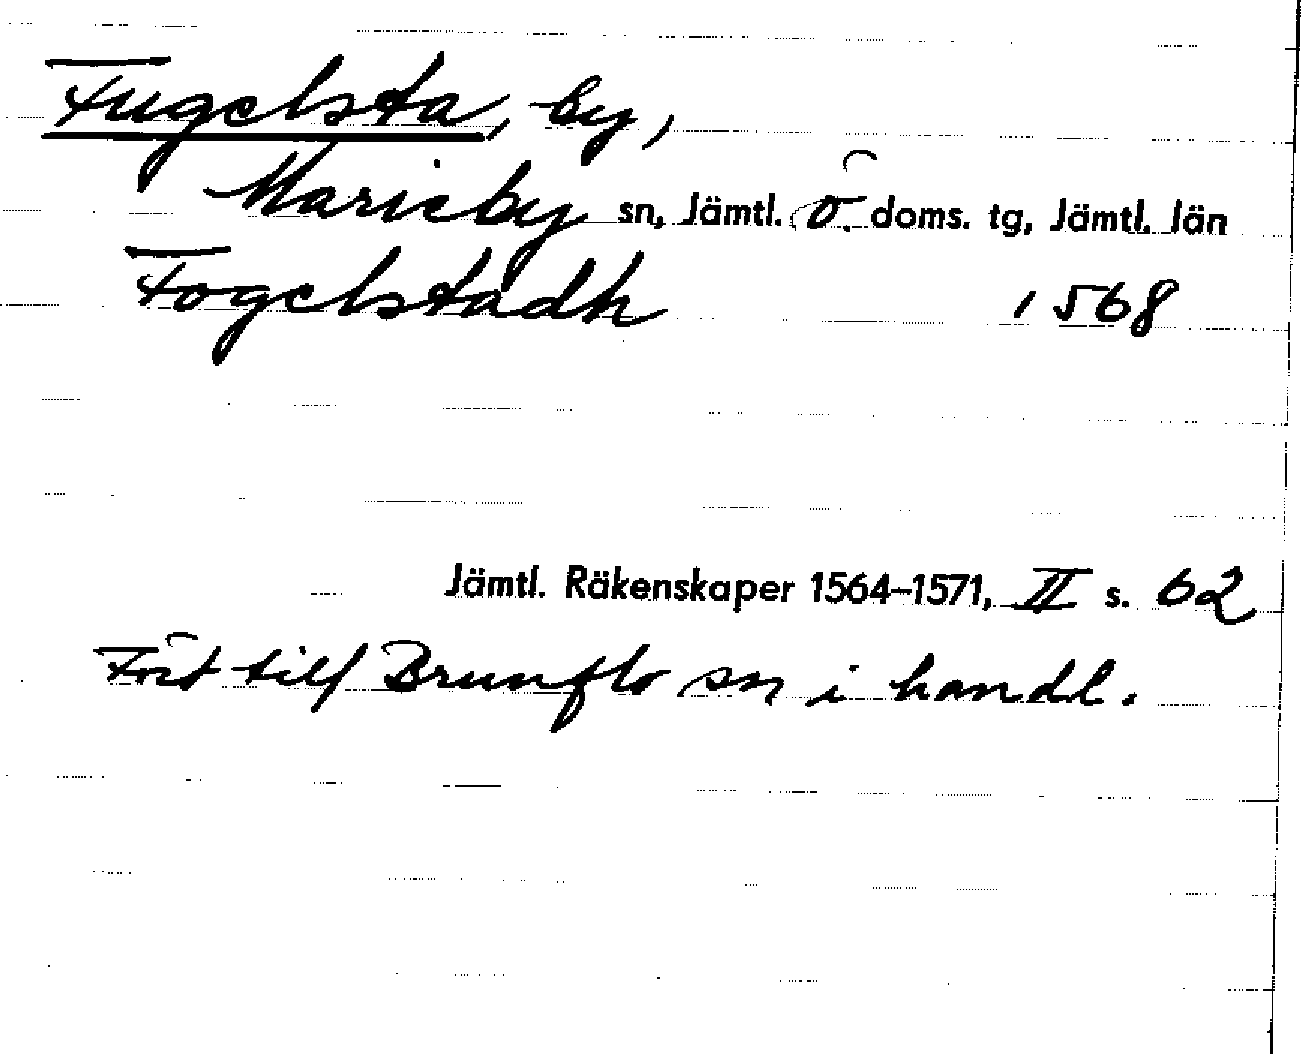 Fugelsta, by,
Marieby sn, Jämtl. ö. doms. tg, Jämtl. län
Fogelstadh 1568
Jämtl. Räkenskaper 1564–1571, II s. 62
Förd till Brunflo sn i handl.